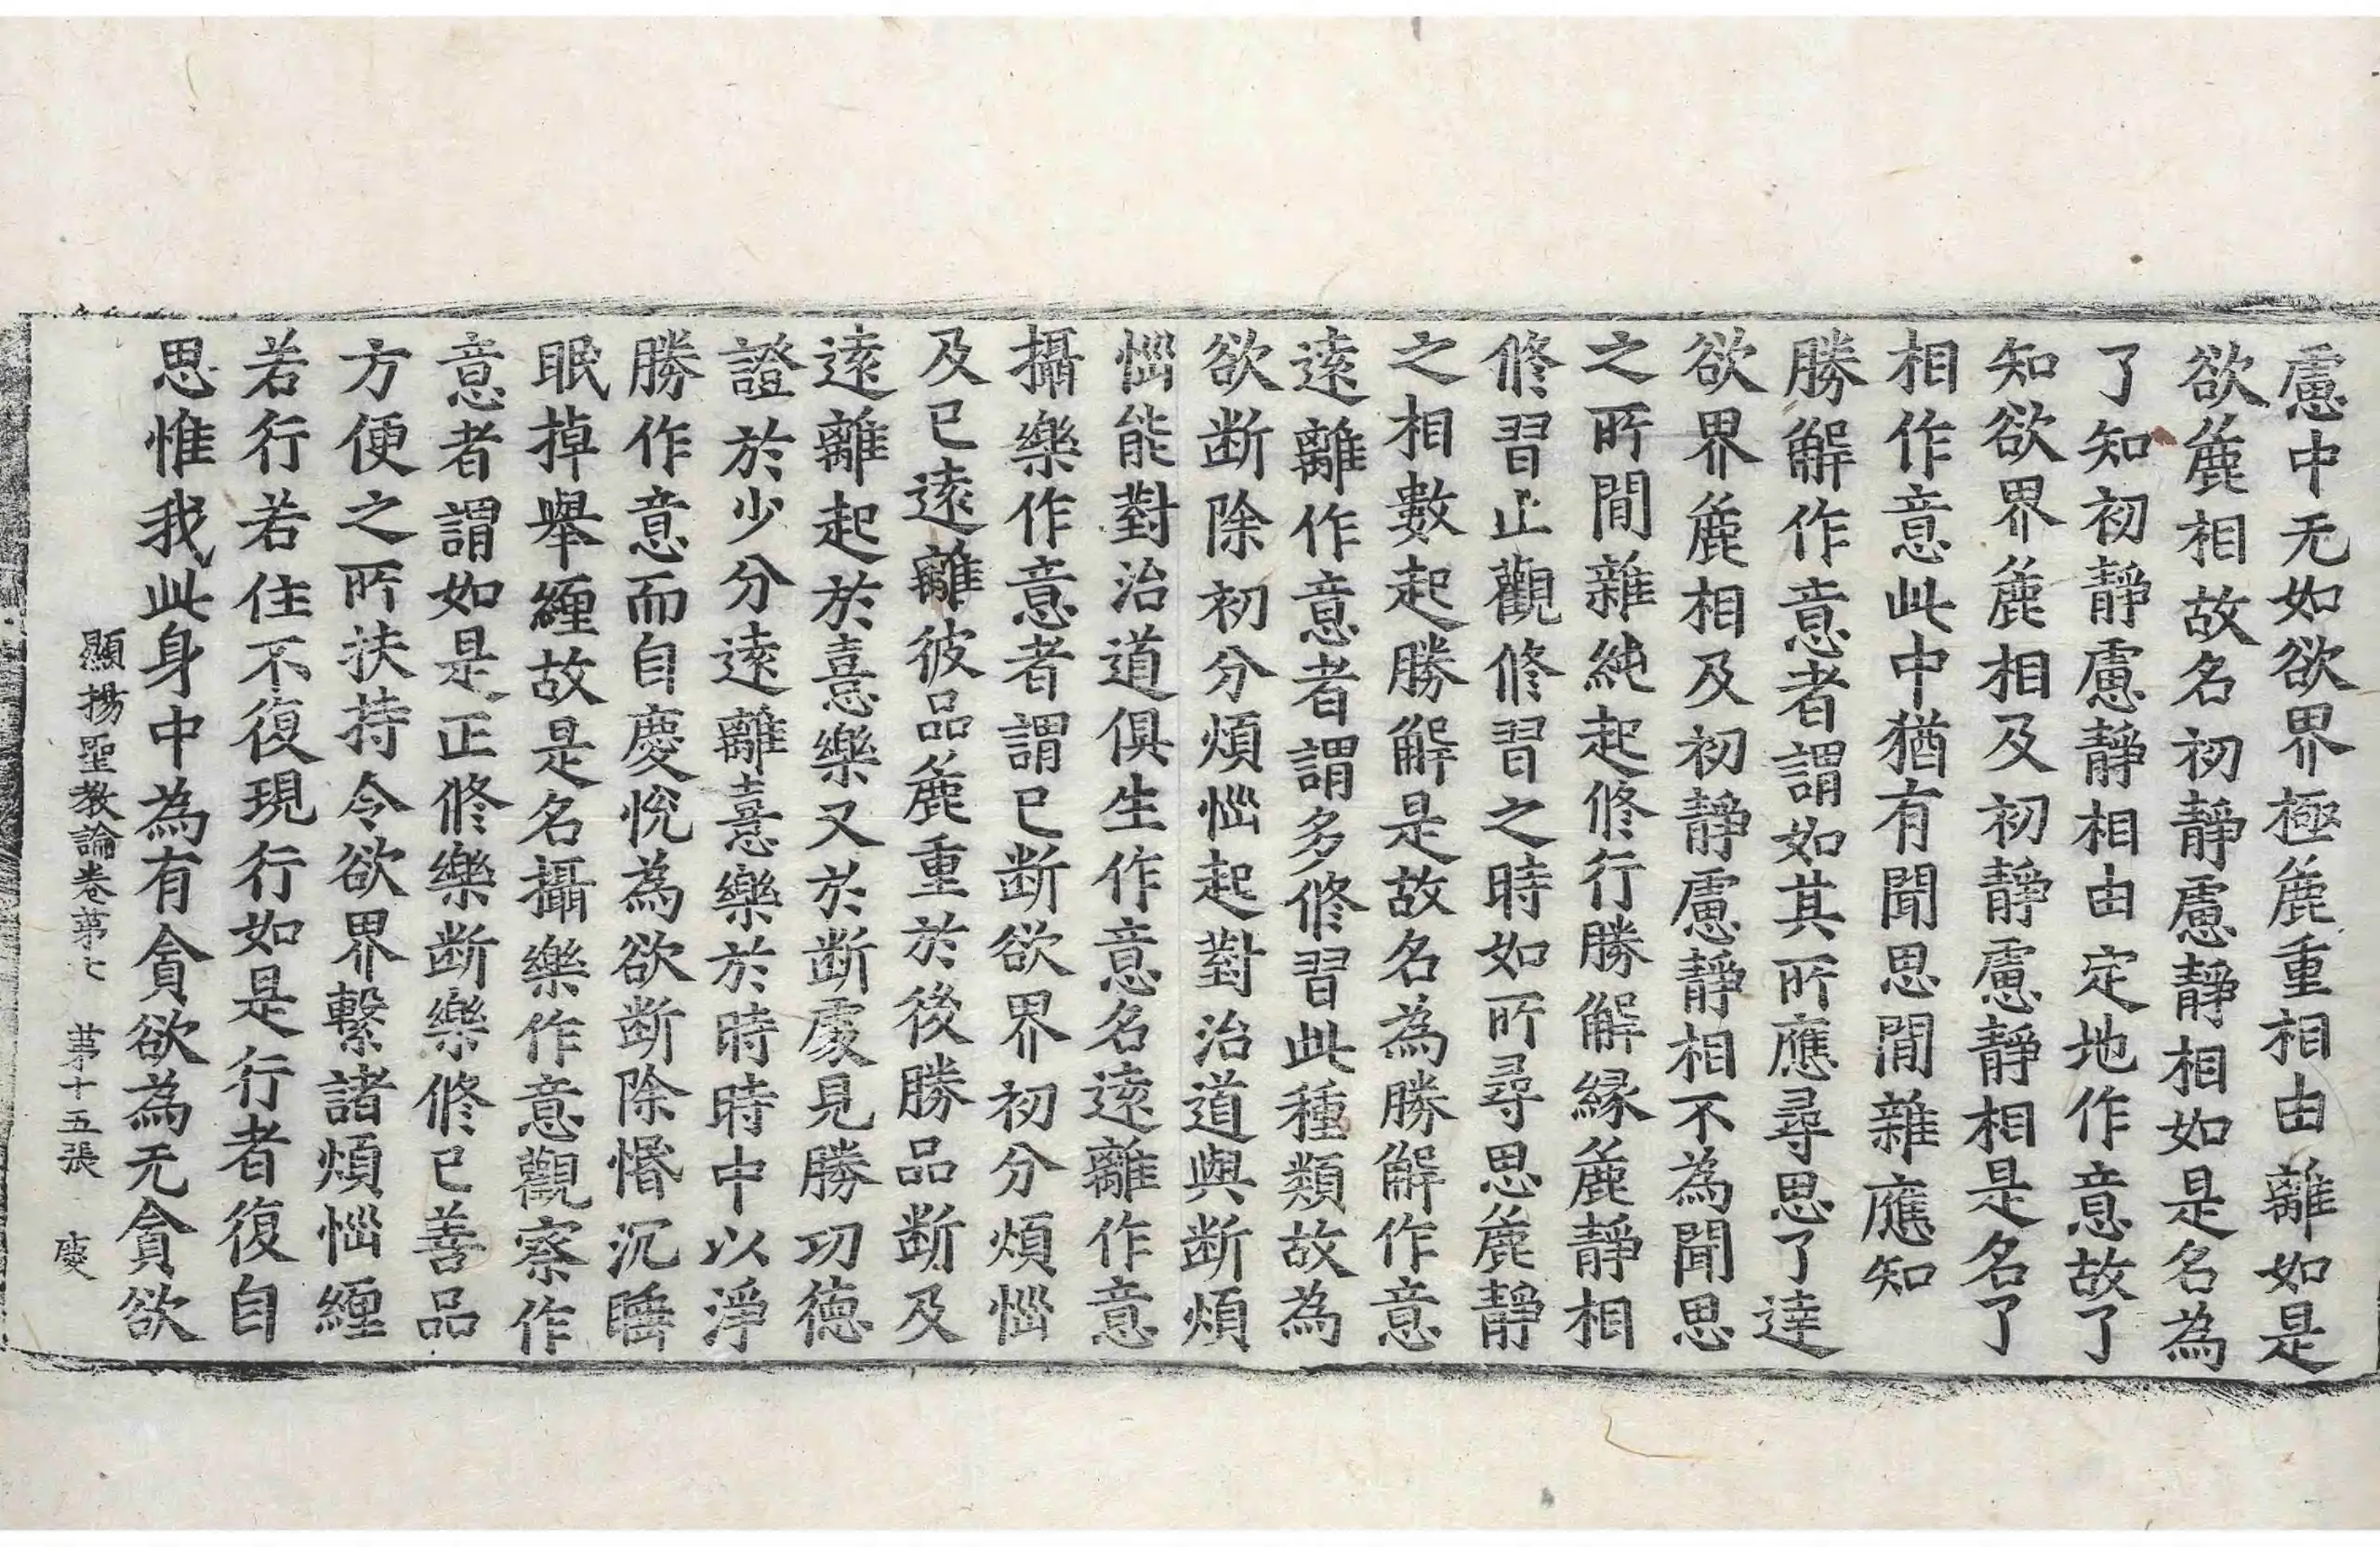 慮中无如欲界極麁重相由離如是
欲麁相故名初靜慮靜相如是名為
了知初靜慮靜相由定地作意故了
知欲界麁相及初靜慮靜相是名了
相作意此中猶有聞思閒雜應知
勝解作意者謂如其所應尋思了達
欲界麁相及初靜慮靜相不為聞思
之所閒雜純起修行勝解緣麁靜相
修習止觀修習之時如所尋思麁靜
之相數起勝解是故名為勝解作意
遠離作意者謂多修習此種類故為
欲断除初分煩惱起對治道與断煩
惱能對治道俱生作意名遠離作意
攝樂作意者謂已断欲界初分煩惱
及已遠離彼品麁重於後勝品断及
遠離起於憙樂又於断處見勝功德
證於少分遠離憙樂於時時中以淨
勝作意而自慶悅為欲断除惛沉睡
眠掉舉纏故是名攝樂作意觀察作
意者謂如是正修樂断樂修已善品
方便之所扶持令欲界繫諸煩惱纏
若行若住不復現行如是行者復自
思惟我此身中為有貪欲為无貪欲
顯揚聖教論卷第七　第十五張　慶